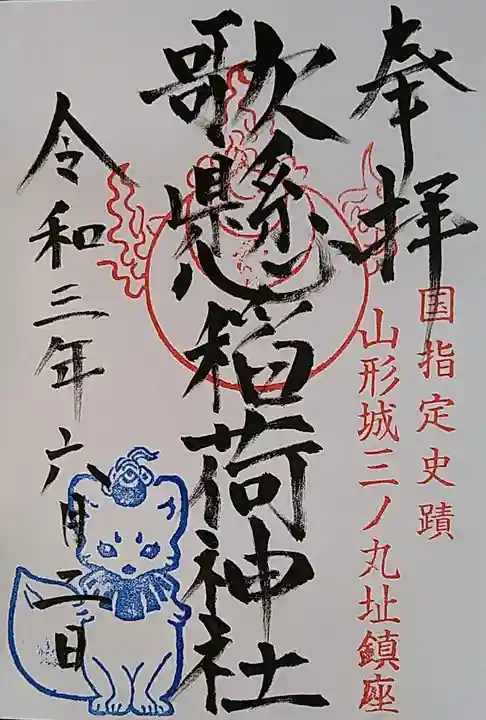 奉拝
国指定史蹟
山形城三ノ丸址鎮座
歌懸稲荷神社
令和三年六月二日